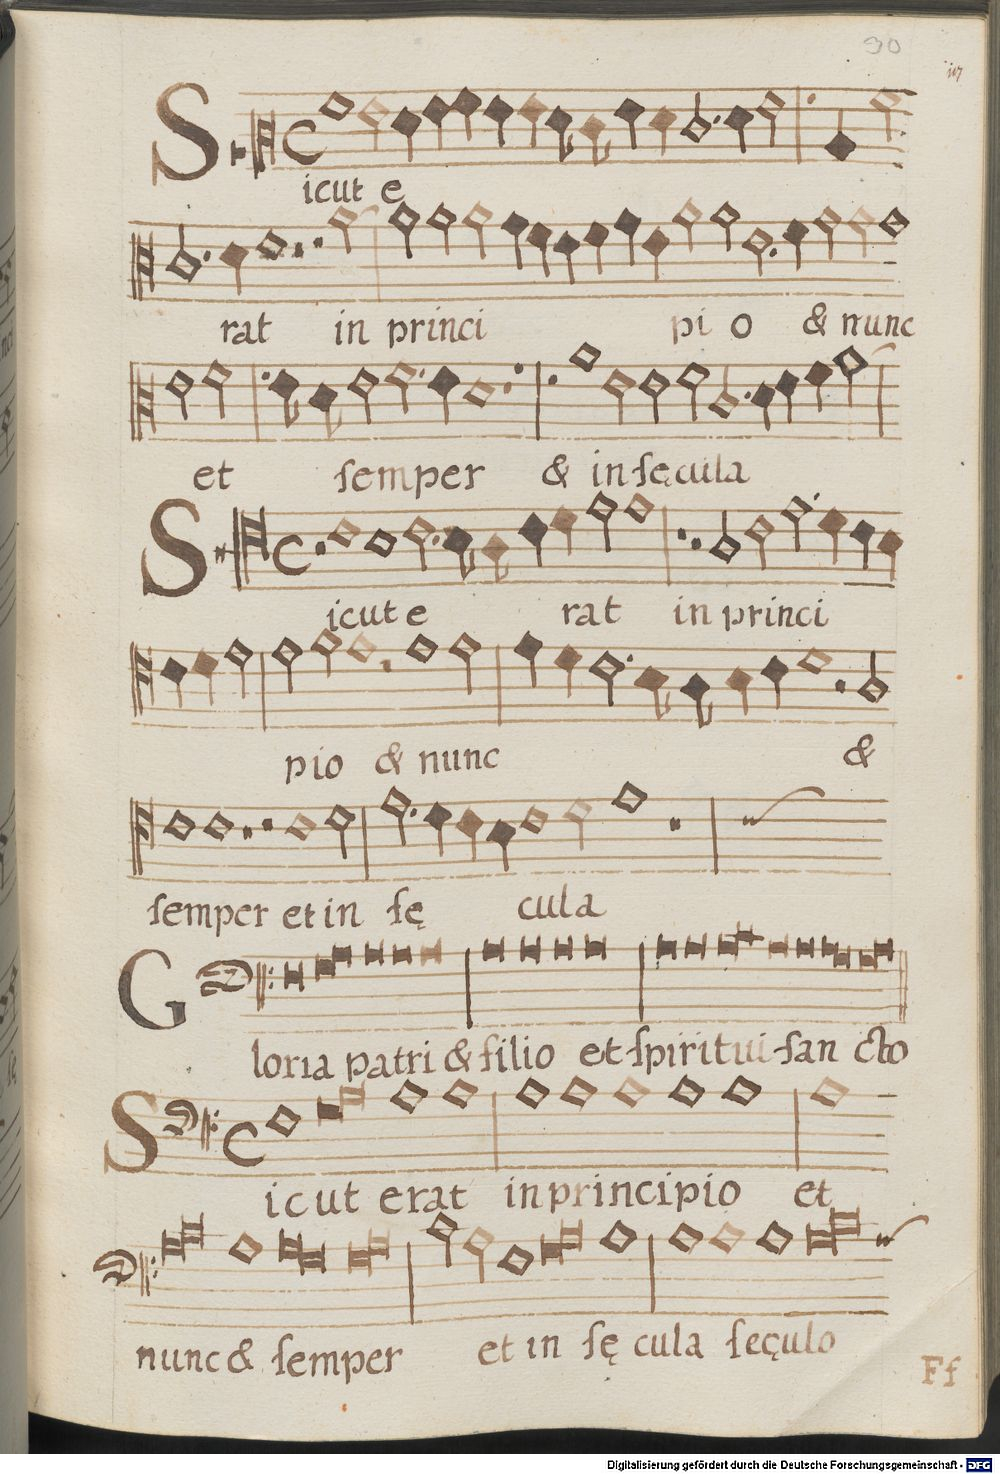 90
Sicut e
rat in princi pi o & nunc
et ſemper & in ſęcula
Sicut e rat in princi
pio & nunc &
ſemper et in ſę cula
Gloria patri & filio et ſpiritui ſan cto
Sicut erat in principio et
nunc & ſemper et in ſę cula ſęculo
Ff
Digitalisierung gefördert durch die Deutsche Forschungsgemeinschaft - DFG